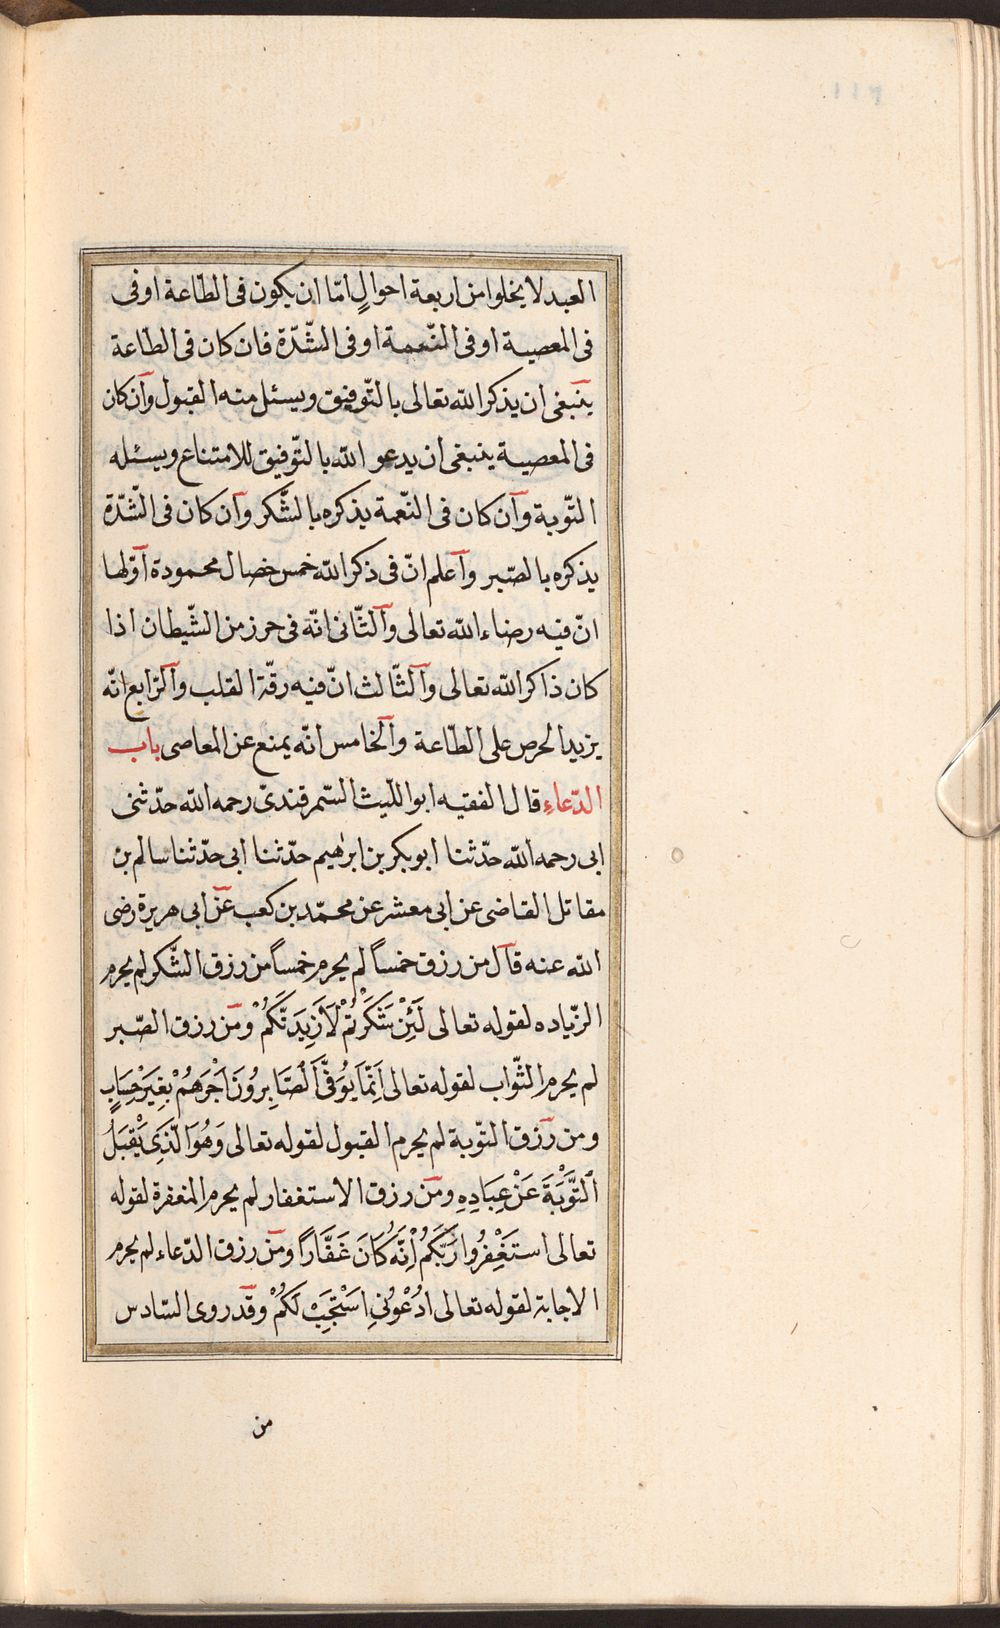 العبد لا يخلوا من اربعة احوالٍ امّا ان يكون فى الطّاعة او فى
فى المعصية او فى النّعمة او فى الشّدّة فان كان فى الطّاعة
ينبغى ان يذكر الله تعالى بالتّوفيق ويسئل منه القبول وان كان
فى المعصية ينبغى ان يدعو الله بالتّوفيق للامتناع ويسئله
التّوبة وان كان فى النّعمة يذكره بالشّكر وان كان فى الشّدّة
يذكره بالصّبر واعلم انّ فى ذكر الله خمس خصال محمودة اوّلها
انّ فيه رضاء الله تعالى والثّانى انّه فى حرز من الشّيطان اذا
كان ذاكر الله تعالى والثّالث انّ فيه رقّة القلب والرّابع انّه
يزيد الحرص على الطّاعة والخامس انّه يمنع عن المعاصى باب
الدّعاء قال الفقيه ابو اللّيث السّمرقندىّ رحمه الله حدّثنى
ابى رحمه الله حدّثنا ابو بكر بن ابرٰهيم حدّثنا ابى حدّثنا سالم بن
مقاتل القاضى عن ابى معشر عن محمّد بن كعب عن ابى هريرة رضى
الله عنه قال من رزق خمساً لم يحرم خمساً من رزق الشّكر لم يحرم
الزّياده لقوله تعالى لَئِنْ شَكَرْتُمْ لَاَزِيدَنَّكُمْ ومن رزق الصّبر
لم يحرم الثّواب لقوله تعالى اِنَّمَا يُوَفَّى الصَّابِرُونَ اَجْرَهُمْ بِغَيْرِ حِسَابٍ
ومن رزق التّوبة لم يحرم القبول لقوله تعالى وَهُوَ الَّذِى يَقْبَلُ
التَّوْبَةَ عَنْ عِبَادِهِ ومن رزق الاستغفار لم يحرم المغفرة لقوله
تعالى اسْتَغْفِرُوا رَبَّكُمْ اِنَّهُ كَانَ غَفَّارًا ومن رزق الدّعاء لم يحرم
الاجابة لقوله تعالى ادْعُونِى اَسْتَجِبْ لَكُمْ وقد روى السّادس
من